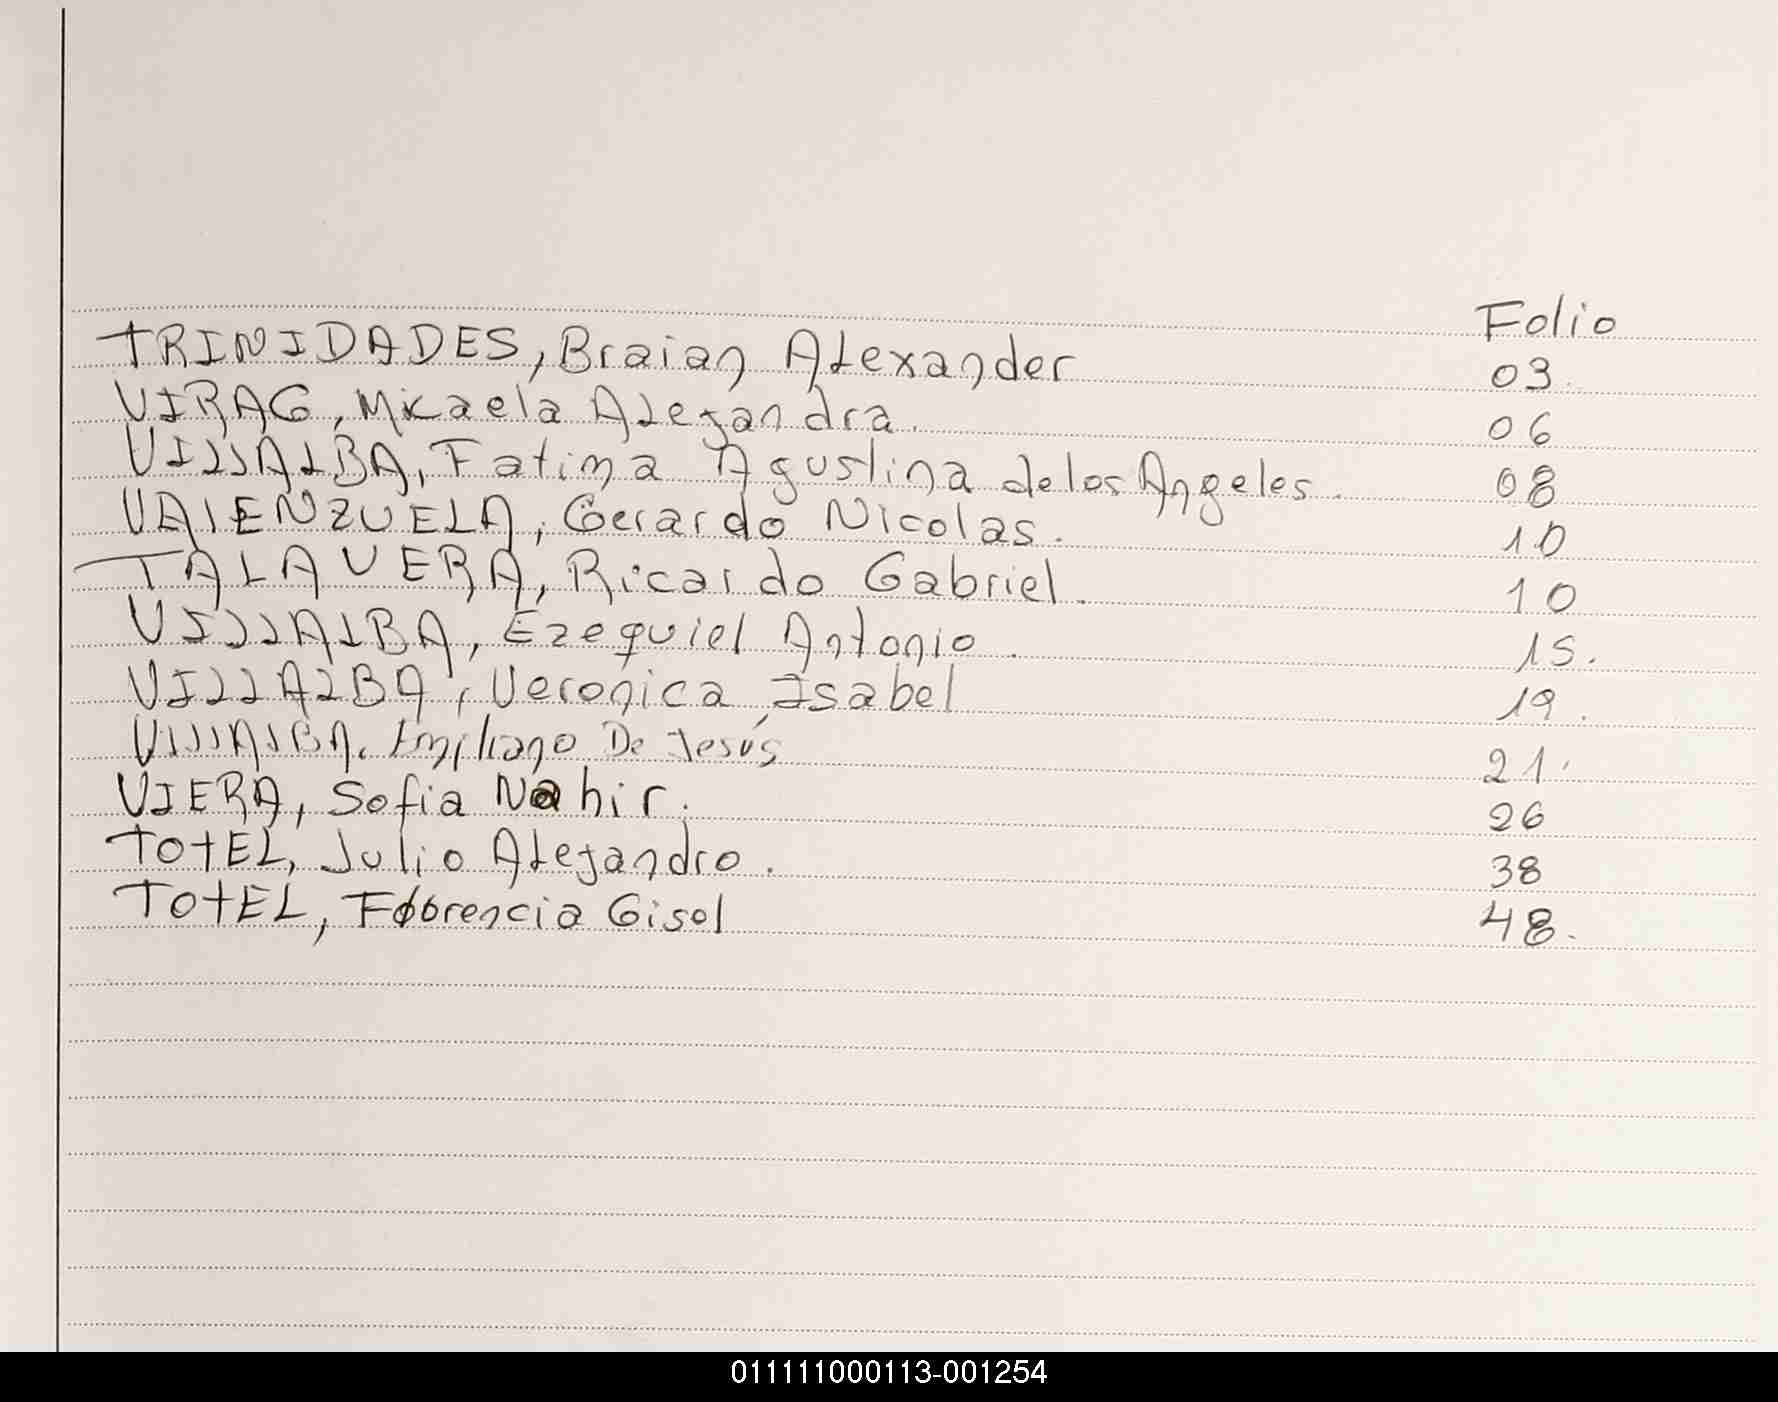 Folio
TRINIDADES, Braian Alexander 03
VIRAG, Micaela Alejandra. 06
VILLALBA, Fatima Agustina de los Angeles. 08
VALENZUELA, Gerardo Nicolas. 10
TALAVERA, Ricardo Gabriel. 10
VILLALBA, Ezequiel Antonio. 15.
VILLALBA, Veronica Isabel 19.
VILLALBA, Emiliano De Jesús 21.
VIERA, Sofia Nahir. 26
TOTEL, Julio Alejandro. 38
TOTEL, Florencia Gisel 48.
011111000113-001254